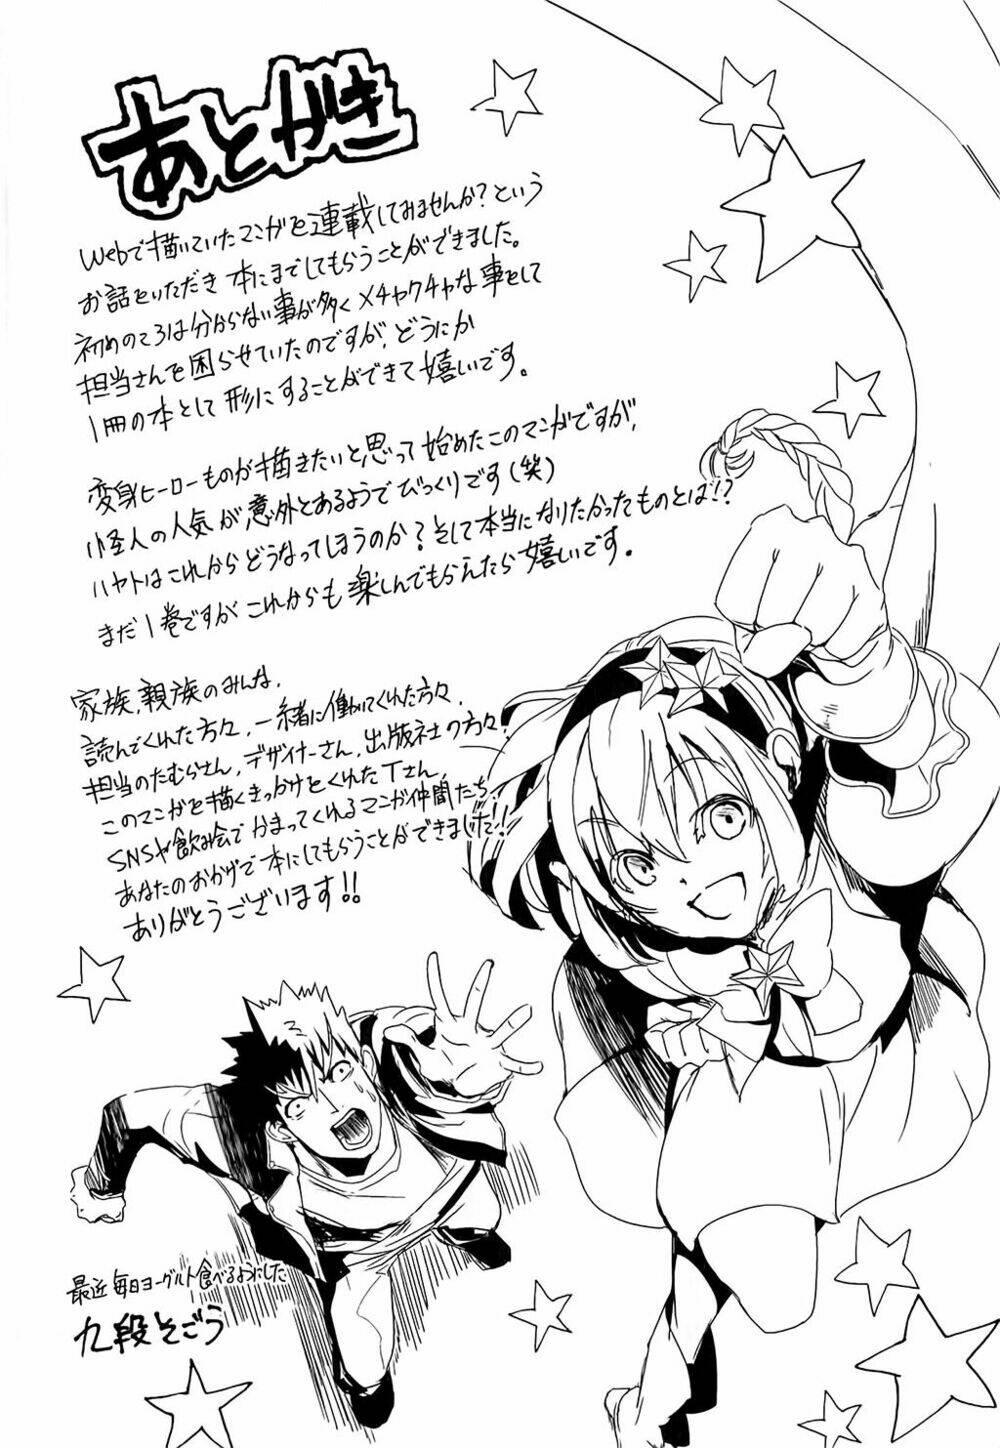 あとがき
Webで描いていたマンガを連載してみませんか?という
お話をいただき 本にまでしてもらうことができました。
初めのころは分からない事が多く メチャクチャな事をして
担当さんを困らせていたのですが、どうにか
1冊の本として 形にすることができて 嬉しいです。
変身ヒーローものが描きたいと思って始めたこのマンガですが、
怪人の人気が意外とあるようでびっくりです(笑)
ハヤトはこれからどうなってしまうのか?そして本当になりたかったものとは!?
まだ1巻ですがこれからも楽しんでもらえたら嬉しいです。
家族、親族のみんな、
読んでくれた方々、一緒に働いてくれた方々、
担当のたむらさん、デザイナーさん、出版社の方々、
このマンガを描くきっかけをくれたTさん、
SNSや飲み会でかまってくれるマンガ仲間たち、
あなたのおかげで本にしてもらうことができました!!
ありがとうございます!!
最近毎日ヨーグルト食べるようにした
九段そごう